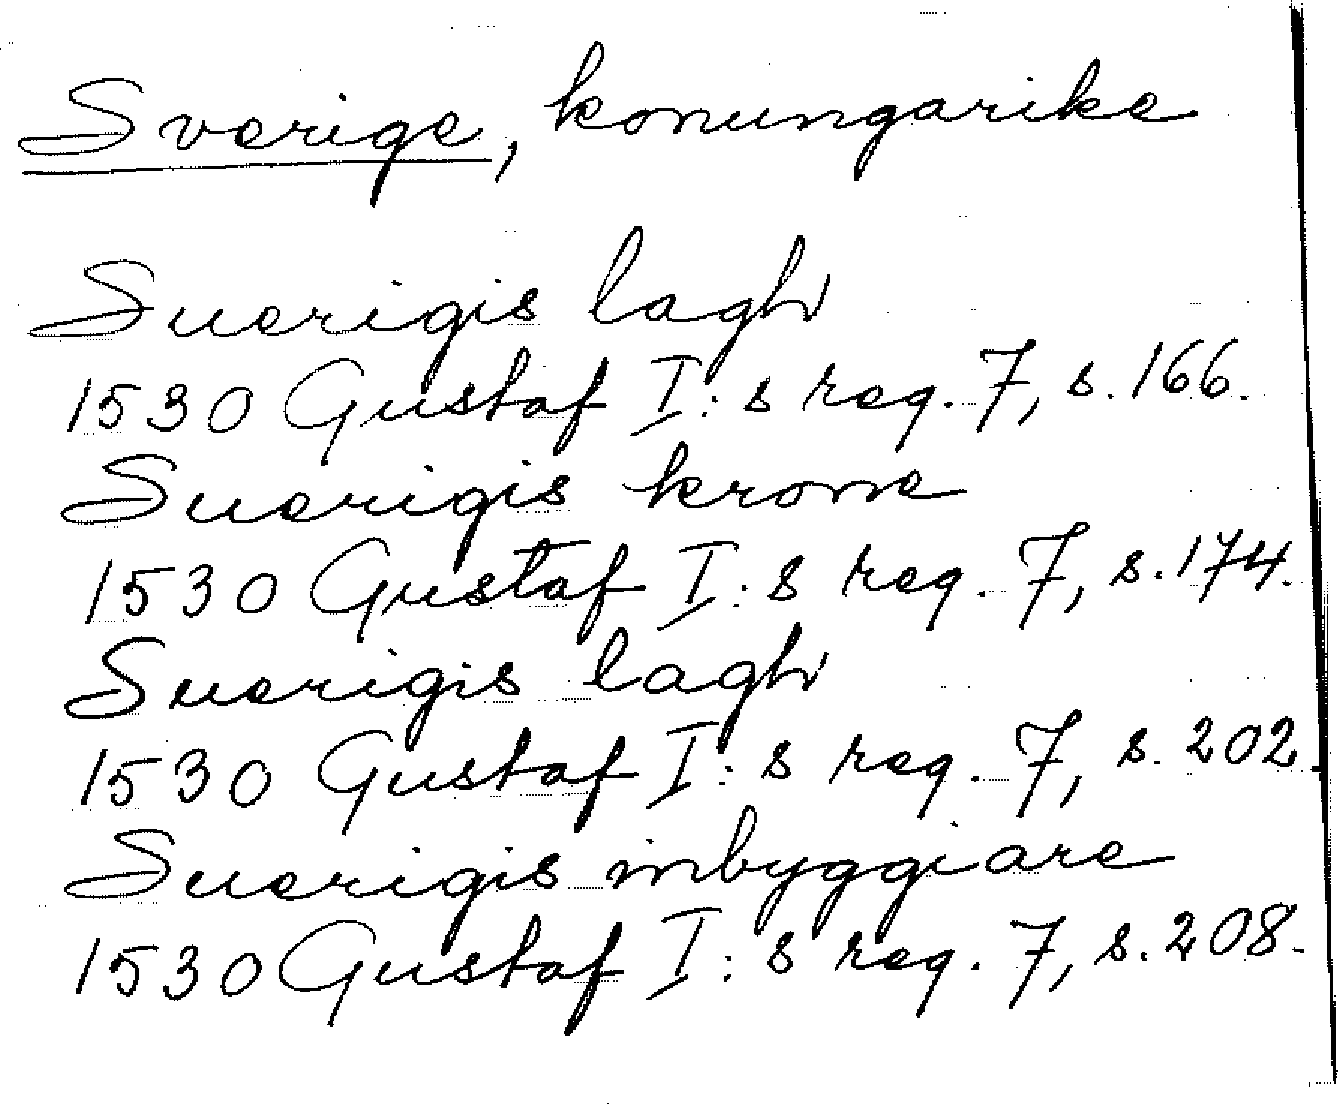 Sverige, konungarike
Suerigis lagh
1530 Gustaf I:s reg. 7, s. 166.
Suerigis krone
1530 Gustaf I:s reg. 7, s. 174.
Suerigis lagh
1530 Gustaf I:s reg. 7, s. 202.
Suerigis inbyggiare
1530 Gustaf I:s reg. 7, s. 208.